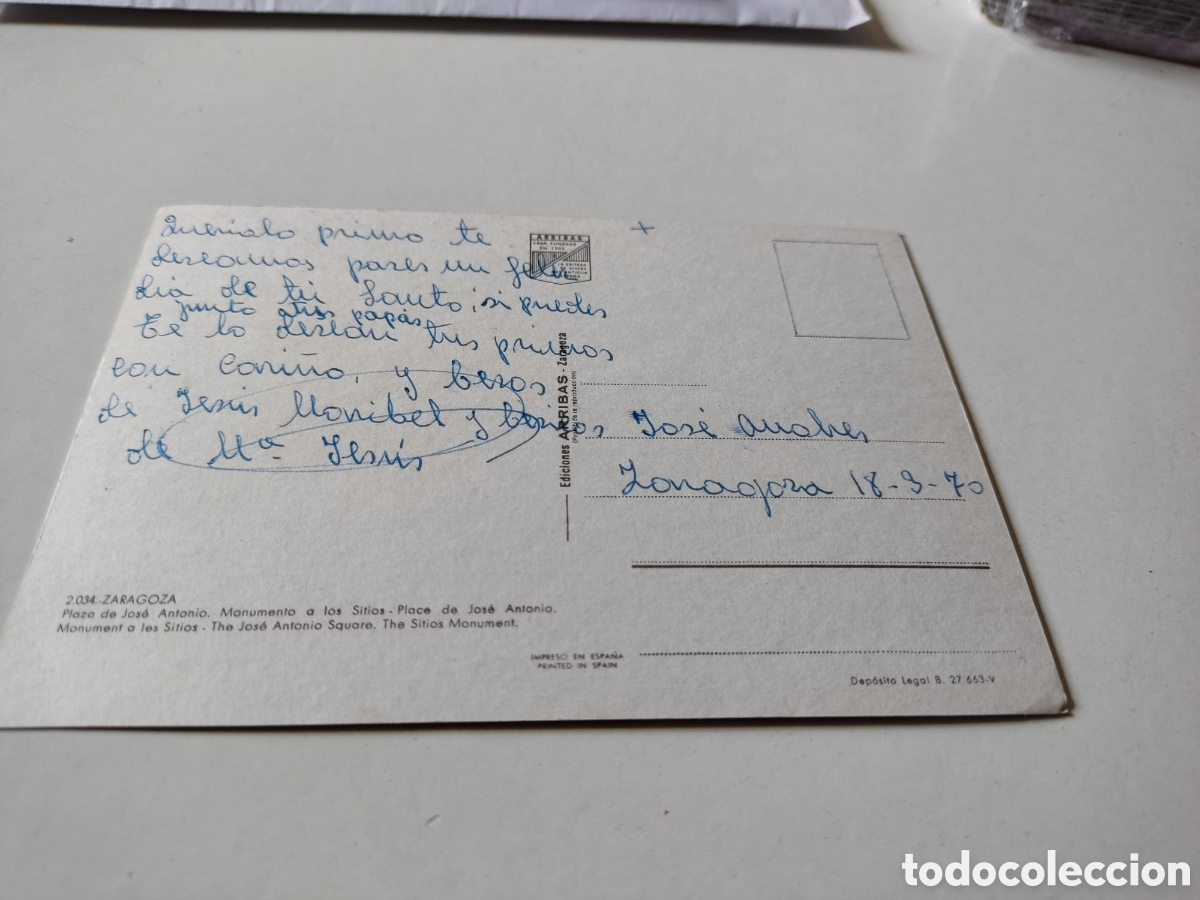 Querido primo te
deseamos pases un feliz
dia de tu Santo, si puedes
junto tus papás
Te lo desean tus primos
con Cariño, y besos
de Jesús Monibel y besos
de Mª Jesús
+
ARRIBAS
CASA FUNDADA
EN 1905
Ediciones ARRIBAS - Zaragoza
José Andres
Zaragoza 18-3-70
2.034.-ZARAGOZA
Plaza de José Antonio. Monumento a los Sitios - Place de José Antonio.
Monument a les Sitios - The José Antonio Square. The Sitios Monument.
IMPRESO EN ESPAÑA
PRINTED IN SPAIN
Depósito Legal B. 27.663-V
todocoleccion